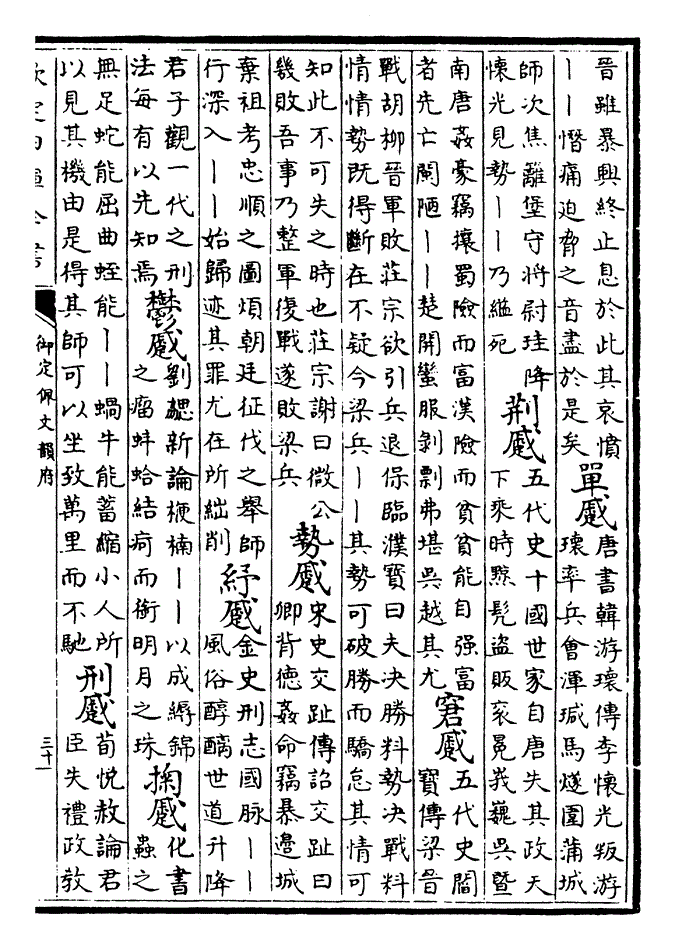 晉雖暴興終止息於此其哀憤
丨丨憯痛迫脅之音盡於是矣
單蹙
唐書韓游瓌傳李懷光叛游
瓌率兵會渾瑊馬燧圍蒲城
師次焦籬堡守將尉珪降
懷光見勢丨丨乃縊死
荆蹙
五代史十國世家自唐失其政天
下乘時黥髡盜販衮冕峩巍吳暨
南唐姦豪竊攘蜀險而富漢險而貧貧能自强富
者先亡閩陋丨丨楚開蠻服剝剽弗堪吳越其尤
窘蹙
五代史閻
寶傳梁晉
戰胡柳晉軍敗莊宗欲引兵退保臨濮寶曰夫決勝料勢决戰料
情情勢既得斷在不疑今梁兵丨丨其勢可破勝而驕怠其情可
知此不可失之時也莊宗謝曰微公
幾敗吾事乃整軍復戰遂敗梁兵
勢蹙
宋史交趾傳詔交趾曰
卿背德姦命竊暴邊城
棄祖考忠順之圖煩朝廷征伐之舉師
行深入丨丨始歸迹其罪尤在所絀削
紓蹙
金史刑志國脉丨丨
風俗醇醨世道升降
君子觀一代之刑
法每有以先知焉
鬱蹙
劉勰新論楩楠丨丨以成縟錦
之瘤蚌蛤結疴而銜明月之珠
掬蹙
化書
蟲之
無足蛇能屈曲蛭能丨丨蝸牛能蓄縮小人所
以見其機由是得其師可以坐致萬里而不馳
刑蹙
荀悦赦論君
臣失禮政教
欽定四庫全書
御定佩文韻府
三十一